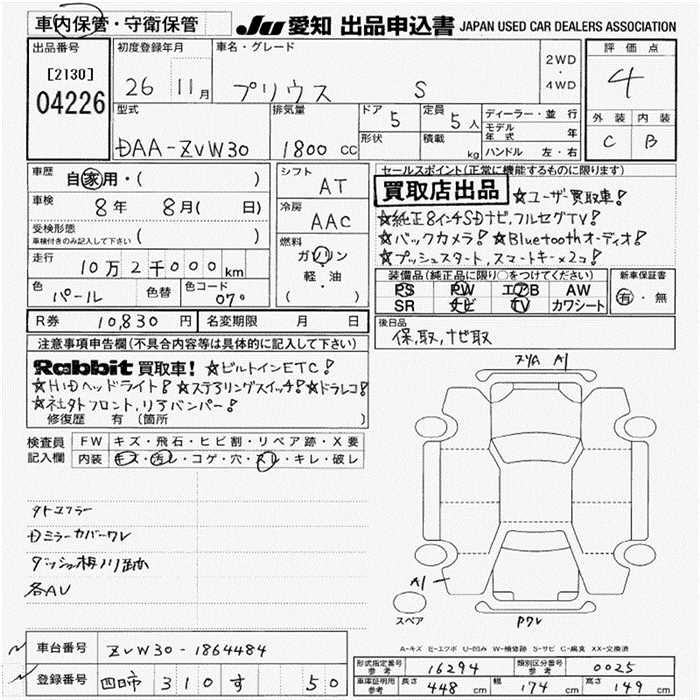 車内保管・守衛保管
JU 愛知 出品申込書 JAPAN USED CAR DEALERS ASSOCIATION
出品番号
[2130]
04226
初度登録年月
26 11月
車名・グレード
プリウス S
2WD
・
4WD
評価点
4
外装 内装
C B
型式
DAA-ZVW30
排気量
1800 CC
ドア 5
定員 5人
形状
積載 kg
ディーラー・並行
モデル年式 年
ハンドル 左・右
車歴 自家用・( )
車検 8年 8月( 日)
受検形態
車検付きのみ記入して下さい ( )
走行 10万2千000km
色 パール
色替
色コード 070
シフト AT
冷房 AAC
燃料
ガソリン
・
軽・油
( )
セールスポイント(正常に機能するものに限ります)
買取店出品 ☆ユーザー買取車!
☆純正8インチSDナビ,フルセグTV!
☆バックカメラ!☆Bluetoothオーディオ!
☆プッシュスタート,スマートキー×2コ!
装備品(純正品に限り○をつけてください)
PS PW エアB AW
SR ナビ TV カワシート
新車保証書
有・無
R券 10,830円
名変期限 月 日
後日品
保,取,ナビ取
注意事項申告欄(不具合内容等は具体的に記入して下さい)
Rabbit 買取車! ☆ビルトインETC!
☆HIDヘッドライト!☆ステアリングスイッチ!☆ドラレコ!
☆社外フロント,リアバンパー!
修復歴 有(箇所 )
検査員記入欄
FW キズ・飛石・ヒビ割・リペア跡・X要
内装 キズ・汚レ・コゲ・穴・スレ・キレ・破レ
外マフラー
Dミラーカバーワレ
各AU
A1
A1
スペア
Pワレ
A-キズ E-エクボ U-凹み W-補修跡 S-サビ C-腐食 XX-交換済
車台番号 ZVW30-1864484
登録番号 四日市 310 す 50
形式指定番号 参考 16294
類別区分番号 参考 0025
車庫証明用 参考 長さ 448cm 幅 174cm 高さ 149cm